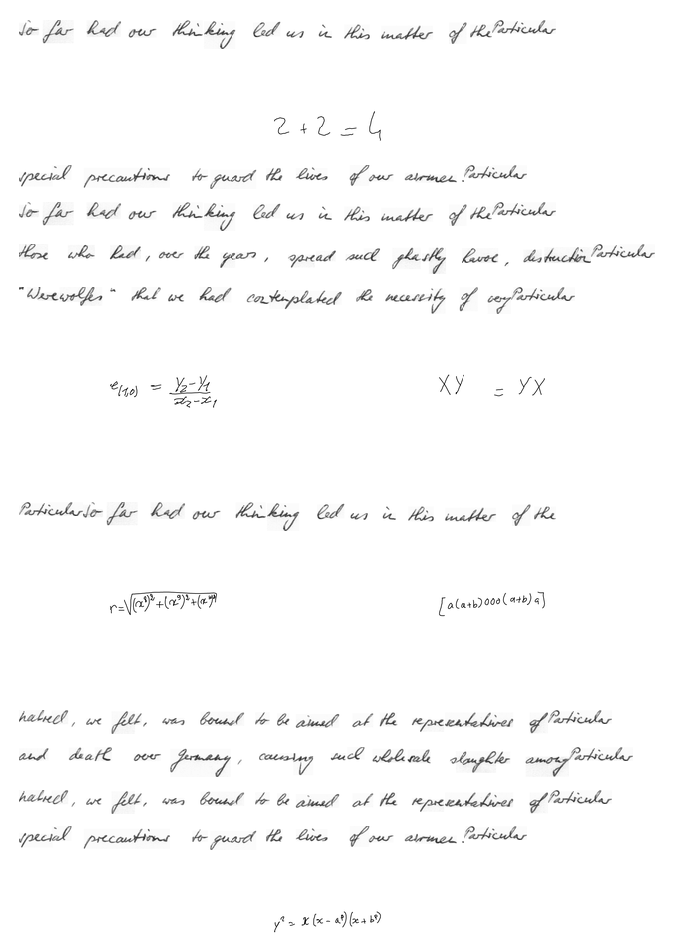 So far had our thinking led us in this matter of the Particular
2 + 2 = 4
special precautions to guard the lives of our airmen. Particular
So far had our thinking led us in this matter of the Particular
those who had, over the years, spread such ghastly havoc, destruction Particular
"Werewolfes" that we had contemplated the necessity of very Particular
e(1,0) = (y2-y1)/(x2-x1) XY = YX
Particular So far had our thinking led us in this matter of the
r=√ [a(a+b)000(a+b)a]
hatred, we felt, was bound to be aimed at the representatives of Particular
and death over Germany, causing such wholesale slaughter among Particular
hatred, we felt, was bound to be aimed at the representatives of Particular
special precautions to guard the lives of our airmen. Particular
= x(x-a⁸)(x+b⁸)